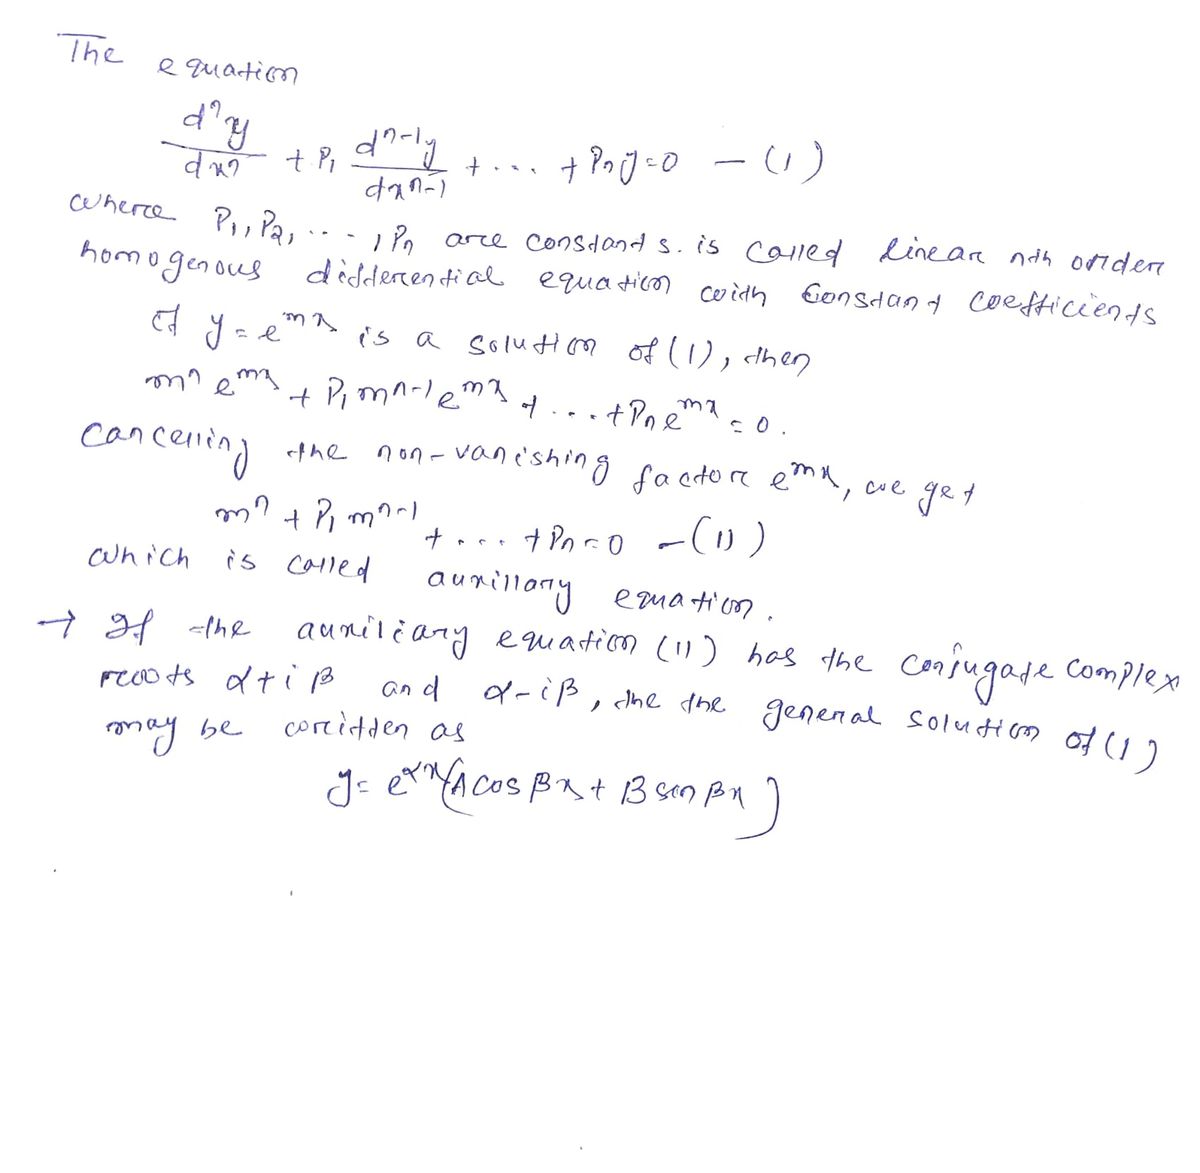 The equation
dⁿy/dxⁿ + P₁ dⁿ⁻¹y/dxⁿ⁻¹ + ... + Pₙy=0 - (1)
where P₁, P₂, ..., Pₙ are constants. is called linear nth order
homogenous differential equation with constant coefficients
If y=e^mx is a solution of (1), then
mⁿ e^mx + P₁ mⁿ⁻¹ e^mx + ... + Pₙ e^mx = 0.
Cancelling the non-vanishing factor e^mx, we get
mⁿ + P₁ mⁿ⁻¹ + ... + Pₙ = 0 - (11)
which is called auxillary equation.
→ If the auxiliary equation (11) has the conjugate complex
roots α+iβ and α-iβ, the the general solution of (1)
may be written as
y = e^αx (A cos βx + B sin βx)